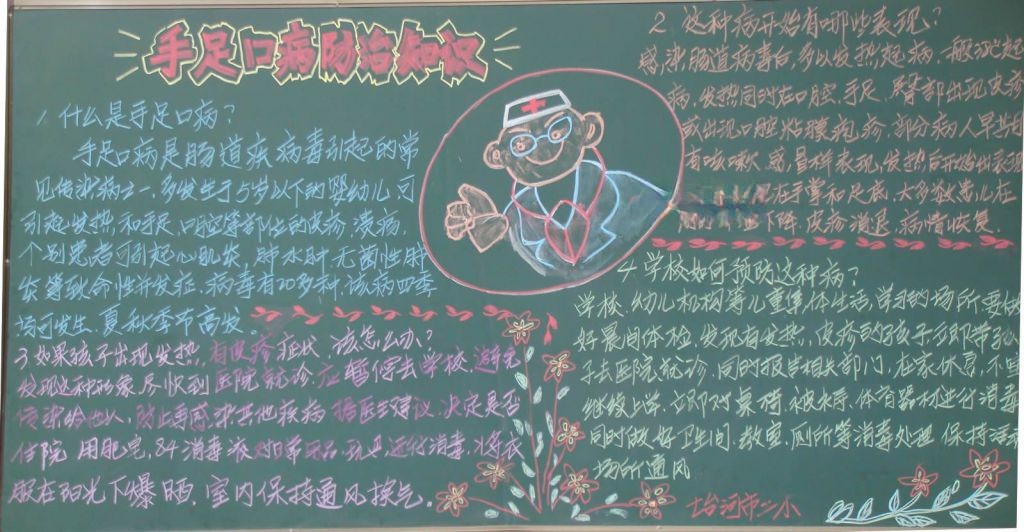 手足口病防治知识
1. 什么是手足口病？
手足口病是肠道疾病毒引起的常
见传染病之一,多发生于5岁以下的婴幼儿,可
引起发热和手足、口腔等部位的皮疹、溃疡,
个别患者可引起心肌炎、肺水肿、无菌性
炎等致命性并发症,病毒有20多种,该病四季
均可发生、夏秋季节高发。
2. 这种病开始有哪些表现？
感染肠道病毒后,多以发热起病,一般
病,发热同时在口腔、手足、臀部出现皮疹
或出现口腔粘膜疱疹,部分病人早期
有咳嗽、感冒样表现,发热
在手掌和足底,大多数患儿在
下降,皮疹消退,病情恢复.
3. 如果孩子出现发热,有皮疹症状,该怎么办？
发现这种现象,尽快到医院就诊,应暂停去学校,避免
传染给他人,防止再感染其他疾病,据医生建议,决定是否
住院,用肥皂,84消毒液对日常用品、玩具进行消毒,将衣
服在阳光下爆晒,室内保持通风换气。
4. 学校如何预防这种病？
学校、幼儿机构等儿童集体生活、学习的场所要做
好晨间体检,发现有发热、皮疹的孩子,立即带孩
子去医院就诊,同时报告相关部门,在家休息,不
继续上学,立即对桌椅、被
同时做好卫生间、教室、厕所等消毒处理,保持活动
场所通风
七台河市二小